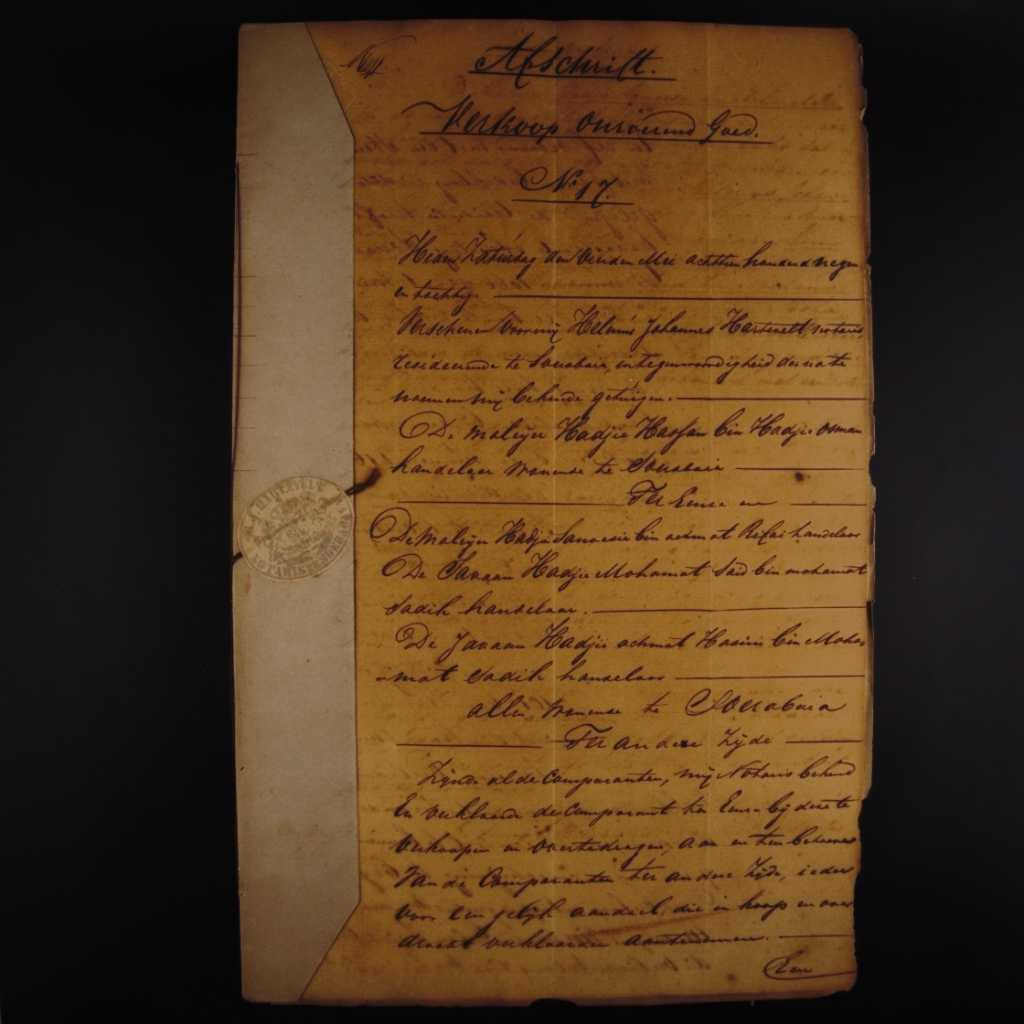 Afschrift.
Verkoop onroerend Goed.
No 17.
Heden Zaturdag den Mei achttienhonderd negen
en tachtig.
Verscheen voor mij Helmus Johannes notaris
residerende te Sourabaia, in tegenwoordigheid der na te
noemen mij bekende getuigen.
De maleijer Hadjie Hassan bin Hadjie Osman
handelaar wonende te Sourabaia
Ter Eenre en
De Maleijer Hadjie bin achmat handelaar
De Javaan Hadjie Mohamat Saïd bin mohamat
Sadik handelaar.
De Javaan Hadjie achmat bin Moha-
mat Sadik handelaar
allen wonende te Sourabaia
Ter andere Zijde
Zijnde al de Comparanten, mij Notaris bekend
En verklaarde de Comparant ter Eenre bij deze te
verkoopen en over te dragen, aan en ten behoeve
van de Comparanten ter andere Zijde, ieder
voor een gelijk aandeel, die in koop en over-
dracht verklaarden aantenemen.
Een